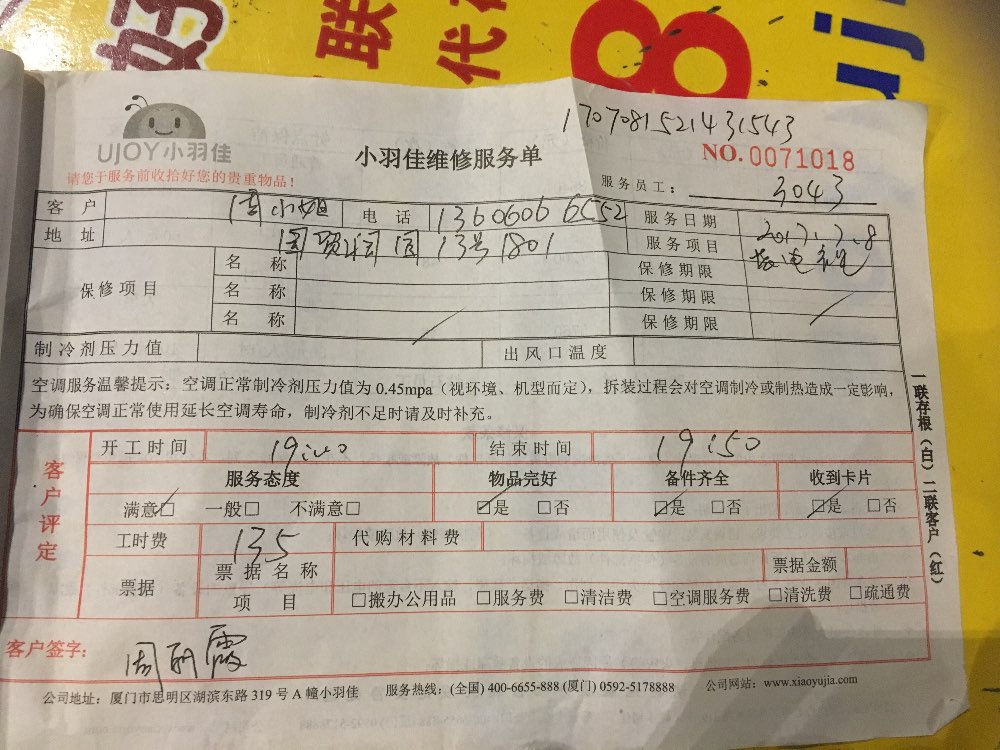 好 联 代 8 uj
1707081521431543
UJOY小羽佳
小羽佳维修服务单
NO.0071018
请您于服务前收拾好您的贵重物品！
服务员工： 3043
客户 周小姐 电话 13606066552 服务日期 2017.7.8
地址 国贸润园13号1801 服务项目
保修项目 名称 保修期限
名称 保修期限
名称 保修期限
制冷剂压力值 出风口温度
空调服务温馨提示：空调正常制冷剂压力值为0.45mpa（视环境、机型而定），拆装过程会对空调制冷或制热造成一定影响，
为确保空调正常使用延长空调寿命，制冷剂不足时请及时补充。
客户评定
开工时间 19:00 结束时间 19:50
服务态度 物品完好 备件齐全 收到卡片
满意☑ 一般□ 不满意□ ☑是 □否 ☑是 □否 ☑是 □否
工时费 135 代购材料费
票据 票据名称 票据金额
项目 □搬办公用品 □服务费 □清洁费 □空调服务费 □清洗费 □疏通费
客户签字： 周丽霞
公司地址：厦门市思明区湖滨东路319号A幢小羽佳 服务热线：(全国) 400-6655-888 (厦门) 0592-5178888 公司网站：www.xiaoyujia.com
一联存根（白）二联客户（红）